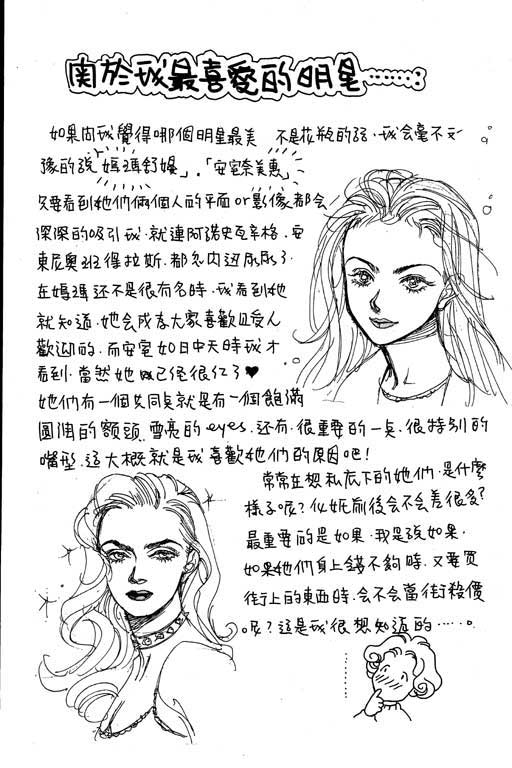 關於我最喜愛的明星……:
如果問我覺得哪個明星最美 不是花瓶的話,我会毫不犹
豫的說「媽瑪舒嫚」.「安室奈美惠」
只要看到她们倆個人的平面or影像都会
深深的吸引我.就連阿諾史瓦辛格.安
東尼奧班得拉斯.都免內
在媽瑪還不是很有名時.我看到她
就知道.她会成為大家喜歡且受人
歡迎的.而安室如日中天時我才
看到.當然她已經很紅了♥
她们有一個共同點就是有一個飽滿
圓潤的額頭.雪亮的eyes.还有.很重要的一點.很特別的
嘴型.這大概就是我喜歡她们的原因吧!
常常在想私底下的她们.是什麼
樣子呢?化妝前後会不会差很多?
最重要的是如果.我是說如果.
如果她们身上錢不夠時.又要買
街上的東西時.会不会當街殺價
呢?這是我很想知道的……。